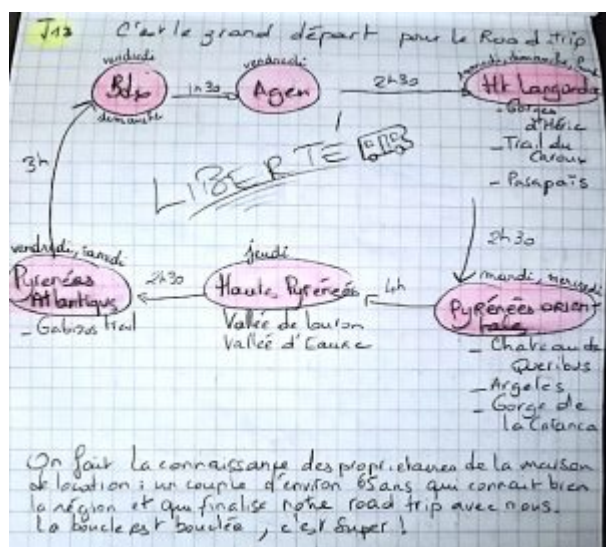 J13 C'est le grand départ pour le Road trip
vendredi
Bdx
dimanche
1h30
vendredi
Agen
2h30
samedi, dimanche,
Ht Languedoc
- Gorges
d'Héric
- Trail du
Caroux
- Pasapaïs
LIBERTÉ
3h
2h30
mardi, mercredi
Pyrénées orien-
tales
- Chateau de
Queribus
- Argeles
- Gorge de
la Caranca
4h
jeudi
Haute Pyrénées
Vallée de Louron
Vallée d'Eaune
2h30
vendredi, samedi
Pyrénées
Atlantiques
- Gabizos trail
On fait la connaissance des proprietaires de la maison
de location : un couple d'environ 65 ans qui connait bien
la région et qui finalise notre road trip avec nous.
La boucle est bouclée, c'est super !